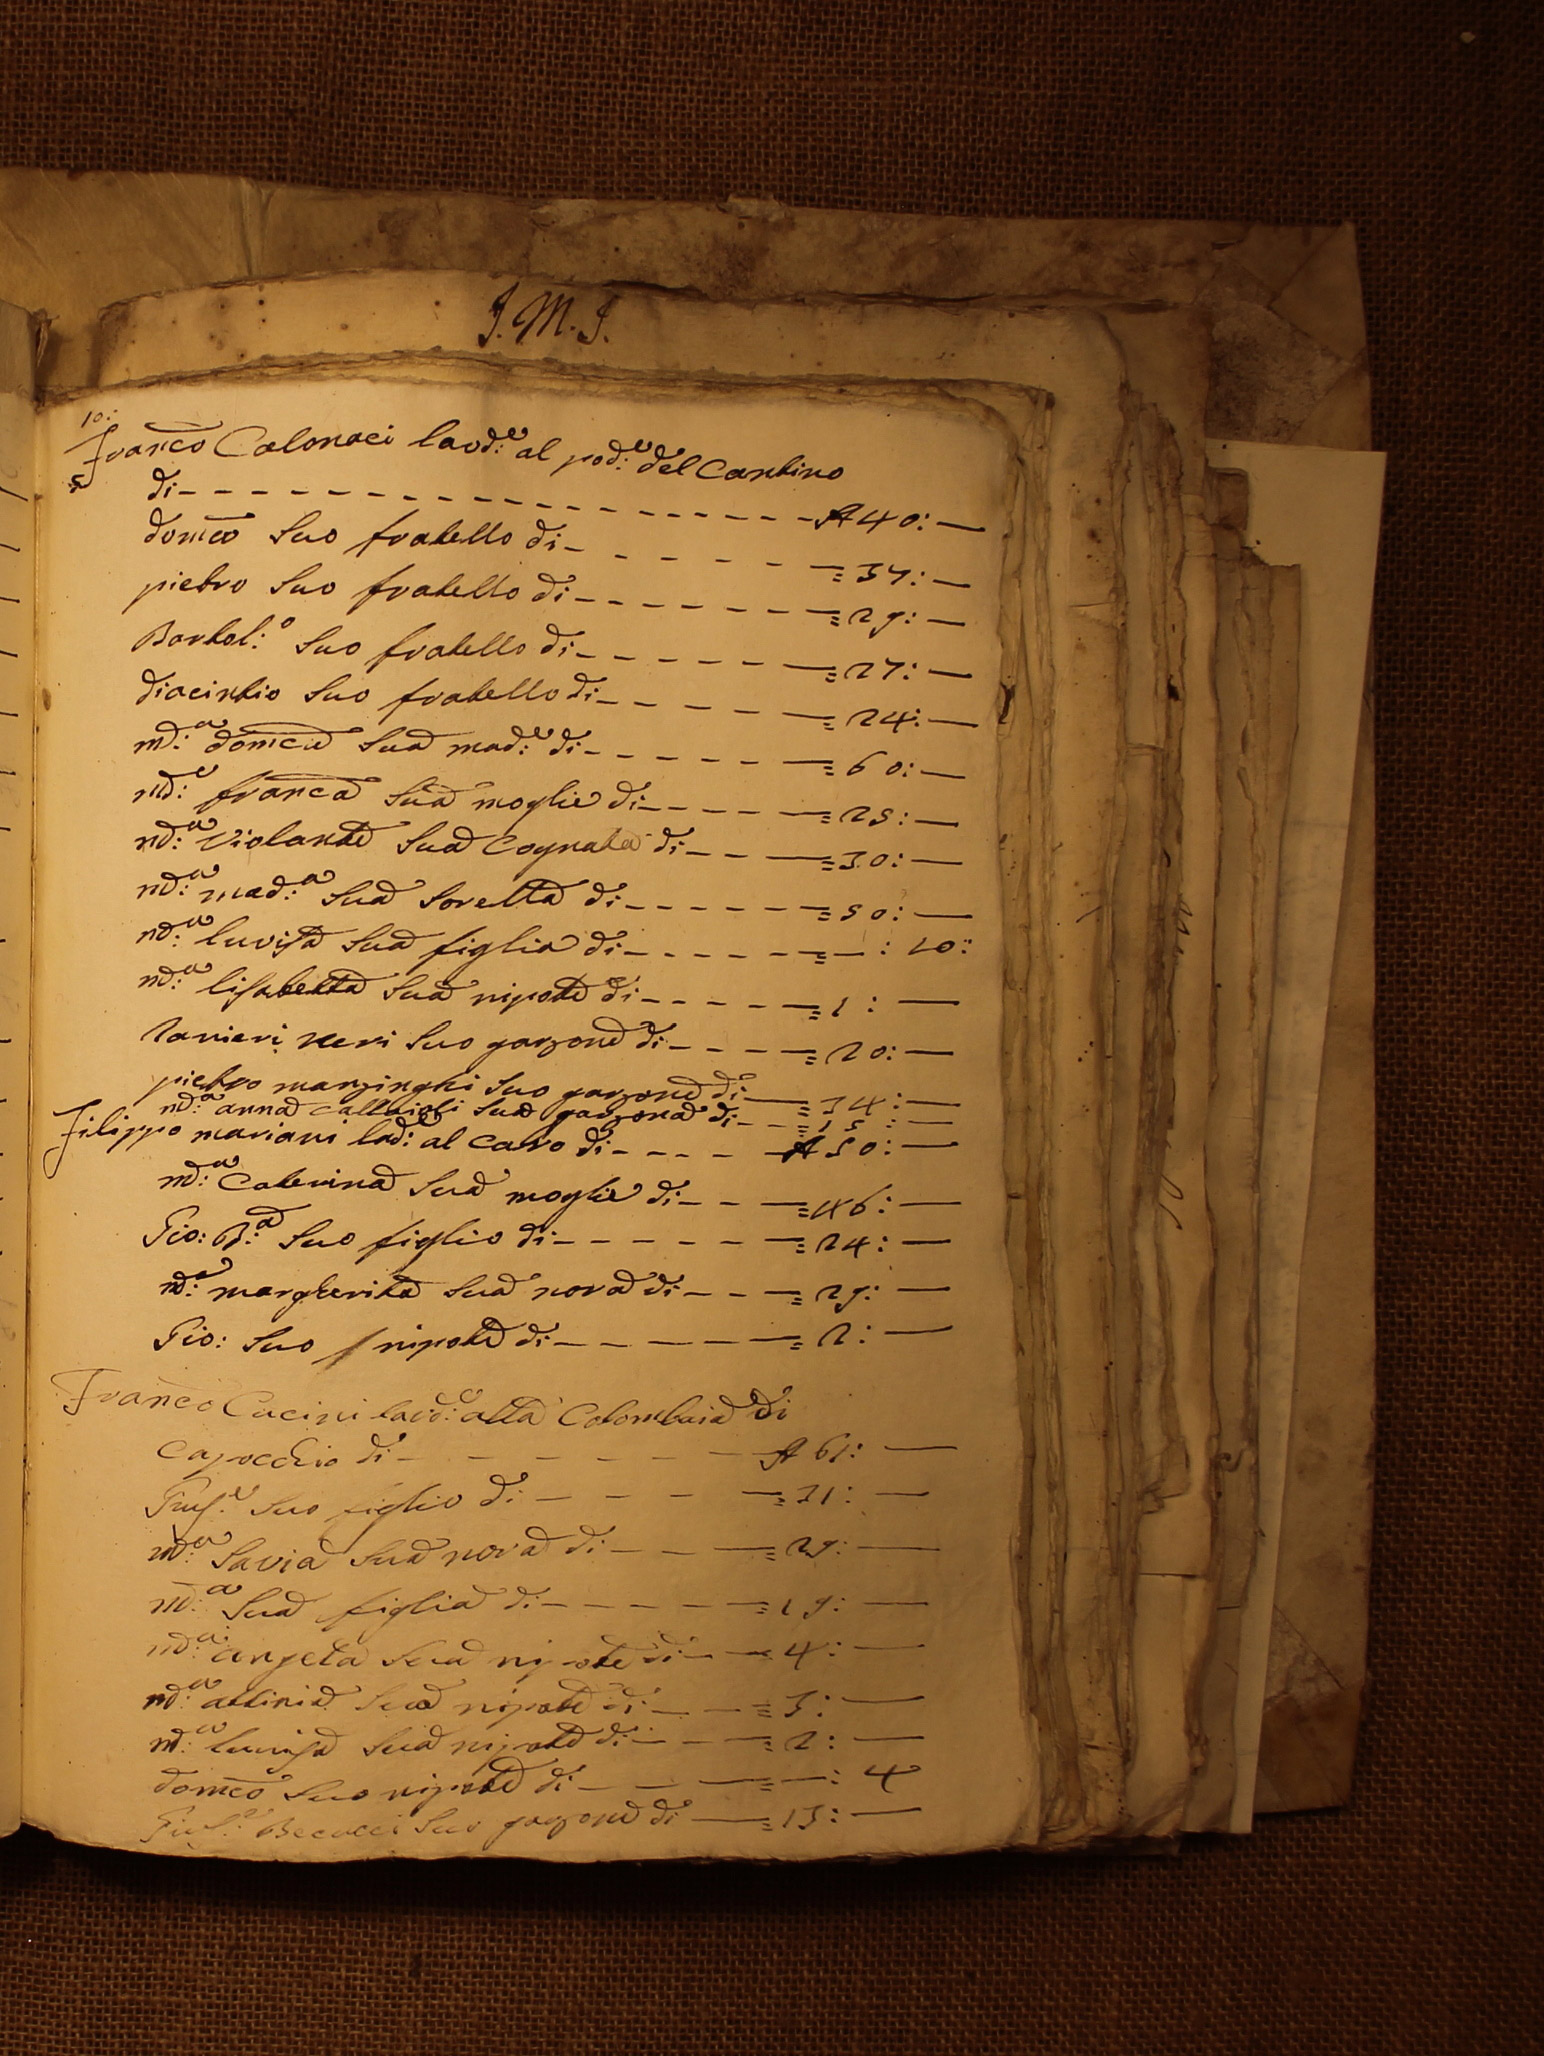 J. M. J.
10:
Franco Calonaci lavd:e al pod:e del Cantino
di A 40:
domco Suo fratello di 37:
pietro Suo fratello di 29:
Bartol:o Suo fratello di 27:
diacintio Suo fratello di 24:
md:a domca Sua mad:e di 60:
md:a franca Sua moglie di 25:
md:a Violante Sua Cognata di 30:
md:a mad:a Sua Sorella di 50:
md:a luvisa Sua figlia di : 10:
md:a lisabetta Sua nipote di 1:
Ranieri neri Suo garzone di 20:
pietro marzinghi Suo garzone di 34:
md:a anna Sua garzona di 15:
Filippo mariani lad:e al Caro di A 50:
md:a Caterina Sua moglie di 46:
Gio: B:a Suo figlio di 24:
md:a margherita Sua nora di 29:
Gio: Suo nipote di 2:
Franco Cucini lavd:e alla Colombaia di
Capocchio di A 61:
Gius:e Suo figlio di 31:
md:a Savia Sua nora di 29:
md:a Sua figlia di 19:
md:a angela Sua nipote di 4:
md:a attinia Sua nipote di 3:
md:a luvisa Sua nipote di 2:
domco Suo nipote di : 4
Gius:e Becucci Suo garzone di 13: